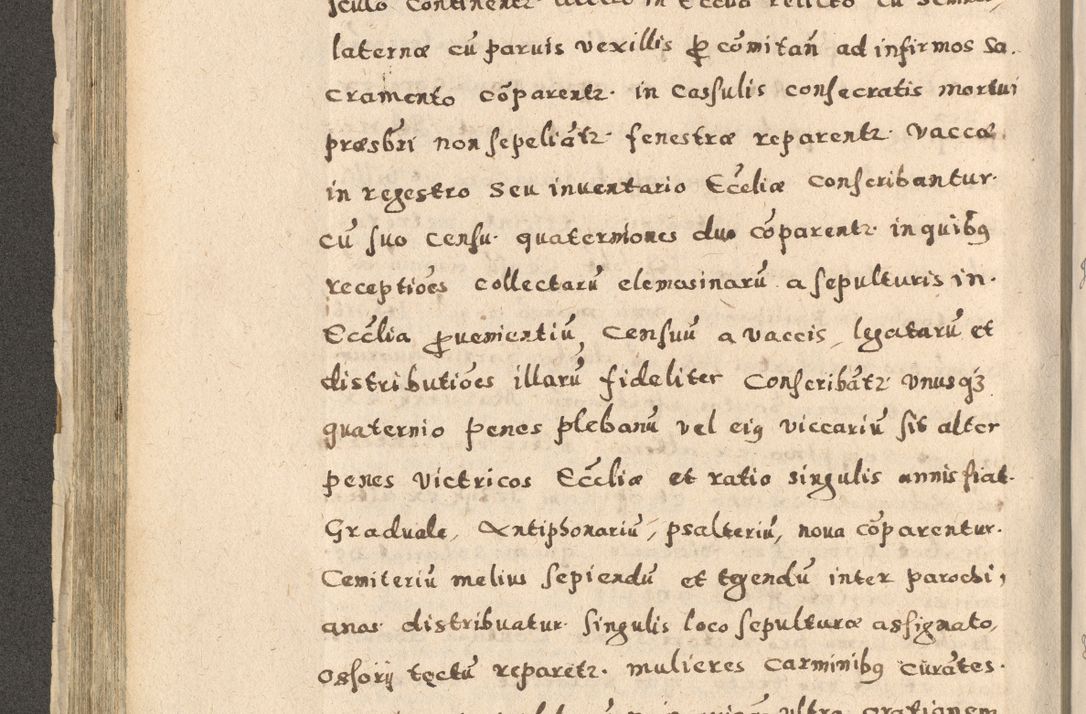 laternæ cū paruis vexillis ꝓ cōmitañ ad infirmos Sa.
cramento cōparentz. in Cassulis consecratis mortui
præsbr̄i non sepeliātz. fenestræ reparentz. Vaccæ
in regestro seu inuentario Ecc̄liæ conscribantur.
cū suo censu. quaterniones duo cōparentz. in quibꝫ
receptiōes collectarū elemosinarū a sepulturis in.
Ecc̄lia ꝓuenientiū, Censuū a vaccis, legatarū et
distributiōes illarū fideliter Conscribātz. Vnusqꝫ
quaternio penes plebanū vel eiꝫ viccariū sit alter
penes Victricos Ecc̄liæ et ratio singulis annis fiat.
Graduale, Antiphonariū, psalteriū, noua cōparentur.
Cemiteriū melius sepiendū et tegendū inter parochi,
anos distribuatur. singulis loco sepulturæ assignato,
Ossorij tectū reparetz. mulieres Carminibꝫ curātes.